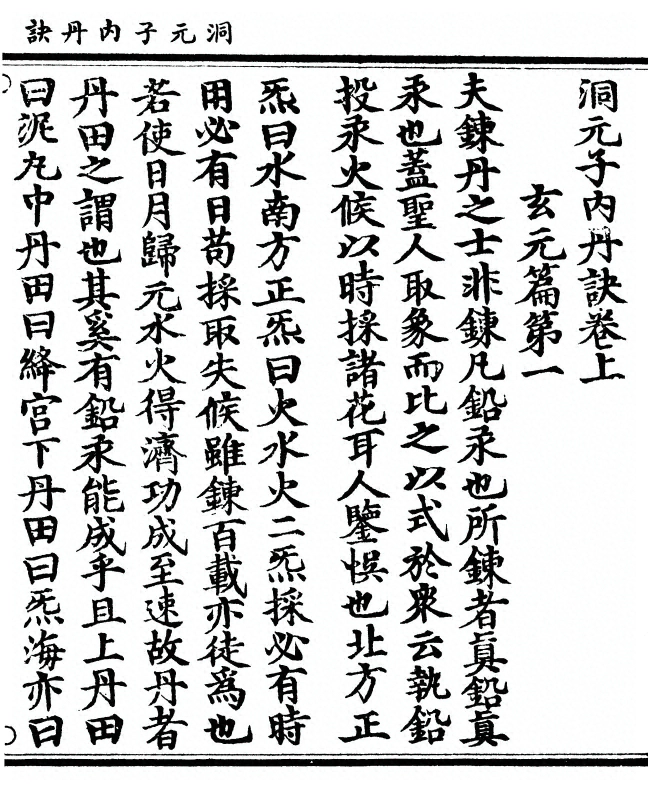 洞元子内丹訣
洞元子内丹訣卷上
玄元篇第一
夫鍊丹之士非鍊凡鉛汞也所鍊者眞鉛眞
汞也蓋聖人取象而比之以式於衆云執鉛
投汞火候以時採諸花耳人鑒悮也北方正
炁曰水南方正炁曰火水火二炁採必有時
用必有日苟採取失候雖鍊百載亦徒爲也
若使日月歸元水火得濟功成至速故丹者
丹田之謂也其奚有鉛汞能成乎且上丹田
曰泥丸中丹田曰絳宫下丹田曰炁海亦曰